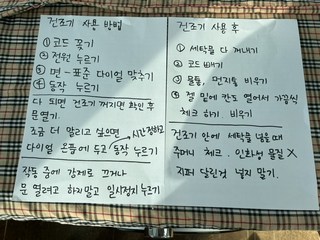 건조기 사용 방법
① 코드 꽂기
② 전원 누르기
③ 면-표준 다이얼 맞추기
④ 동작 누르기
다 되면 건조기 꺼지면 확인 후
문열기.
조금 더 말리고 싶으면 시간정하고
다이얼 온풍에 두고 동작 누르기
작동 중에 강제로 끄거나
문 열려고 하지말고 일시정지 누르기
건조기 사용 후
① 세탁물 다 꺼내기
② 코드 빼기
③ 물통, 먼지틀 비우기
④ 젤 밑에 칸도 열어서 가끔씩
체크 하기 비우기
건조기 안에 세탁물 넣을때
주머니 체크. 인화성 물질 X
지퍼 달린것 넣지 말기.